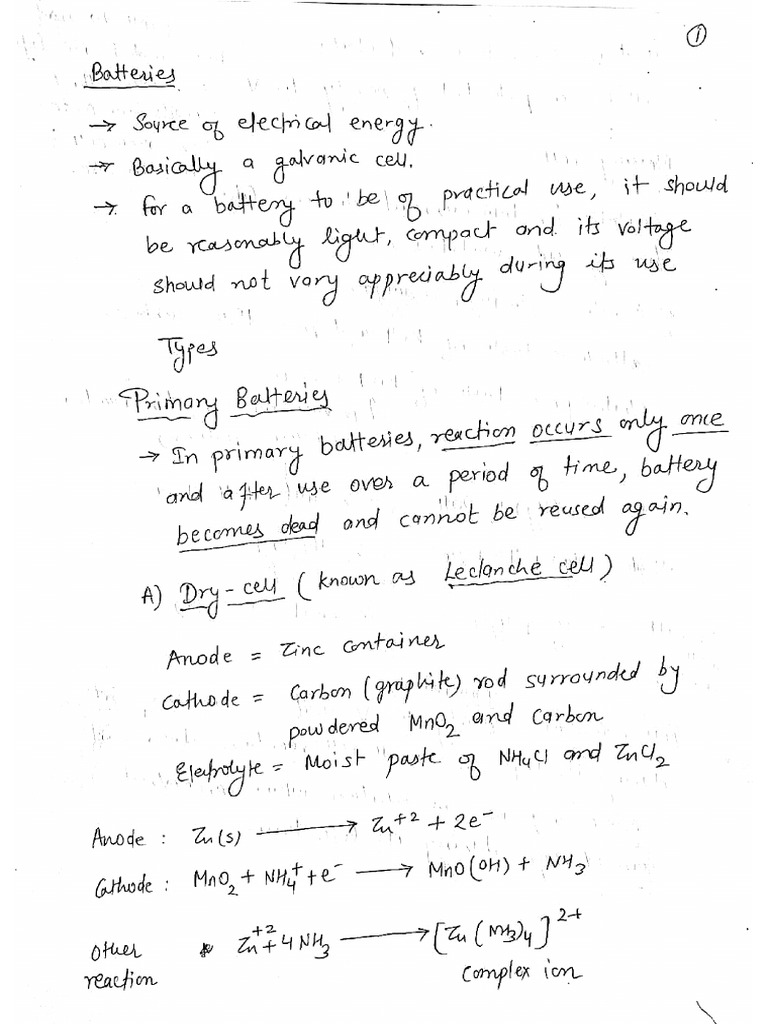 ①
Batteries
→ Source of electrical energy.
→ Basically a galvanic cell.
→ for a battery to be of practical use, it should
be reasonably light, compact and its voltage
should not vary appreciably during its use
Types
Primary Batteries
→ In primary batteries, reaction occurs only once
and after use over a period of time, battery
becomes dead and cannot be reused again.
A) Dry-cell (known as Leclanche cell)
Anode = Zinc container
Cathode = Carbon (graphite) rod surrounded by
powdered MnO₂ and Carbon
Electrolyte = Moist paste of NH₄Cl and ZnCl₂
Anode : Zn(s) ⟶ Zn⁺² + 2e⁻
Cathode : MnO₂ + NH₄⁺ + e⁻ ⟶ MnO(OH) + NH₃
Other Zn⁺² + 4NH₃ ⟶ [Zn(NH₃)₄]²⁺
reaction Complex ion